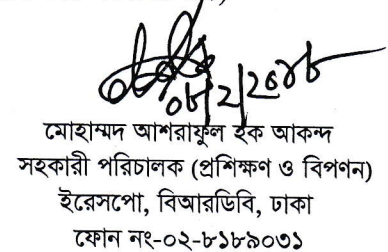 মোহাম্মদ আশরাফুল হক আকন্দ
সহকারী পরিচালক (প্রশিক্ষণ ও বিপণন)
ইরেসপো, বিআরডিবি, ঢাকা
ফোন নং-০২-৮১৮৯০৩১